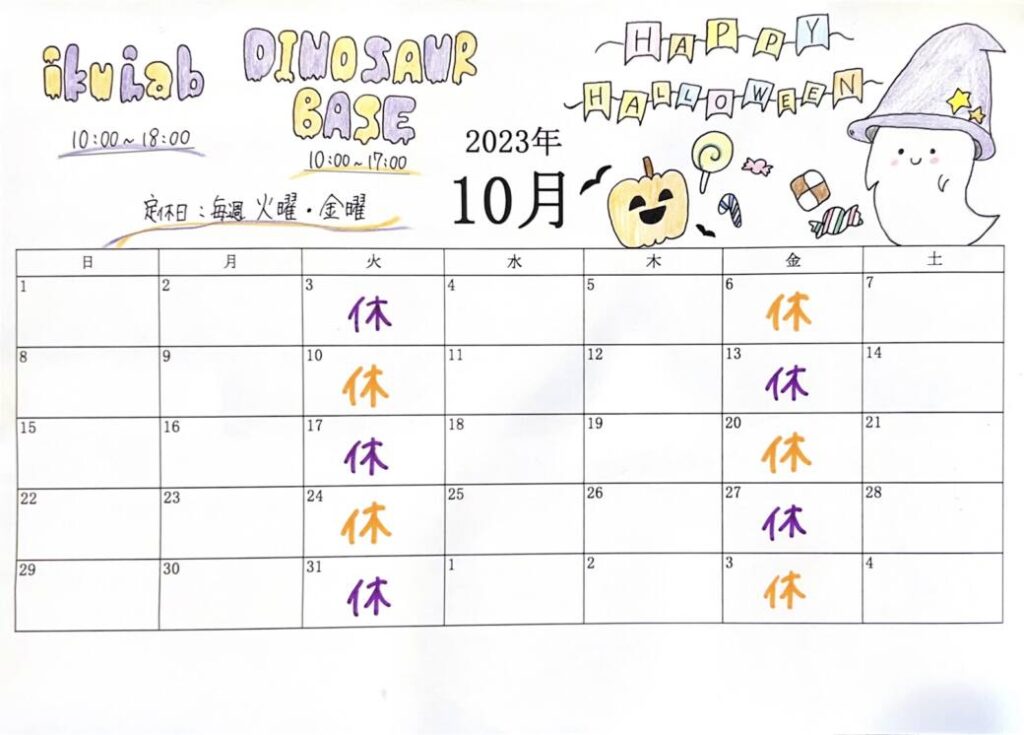 ikulab
10:00~18:00
DINOSAUR
BASE
10:00~17:00
定休日：毎週 火曜・金曜
2023年
10月
HAPPY
HALLOWEEN
日 月 火 水 木 金 土
1 2 3 4 5 6 7
休 休
8 9 10 11 12 13 14
休 休
15 16 17 18 19 20 21
休 休
22 23 24 25 26 27 28
休 休
29 30 31 1 2 3 4
休 休